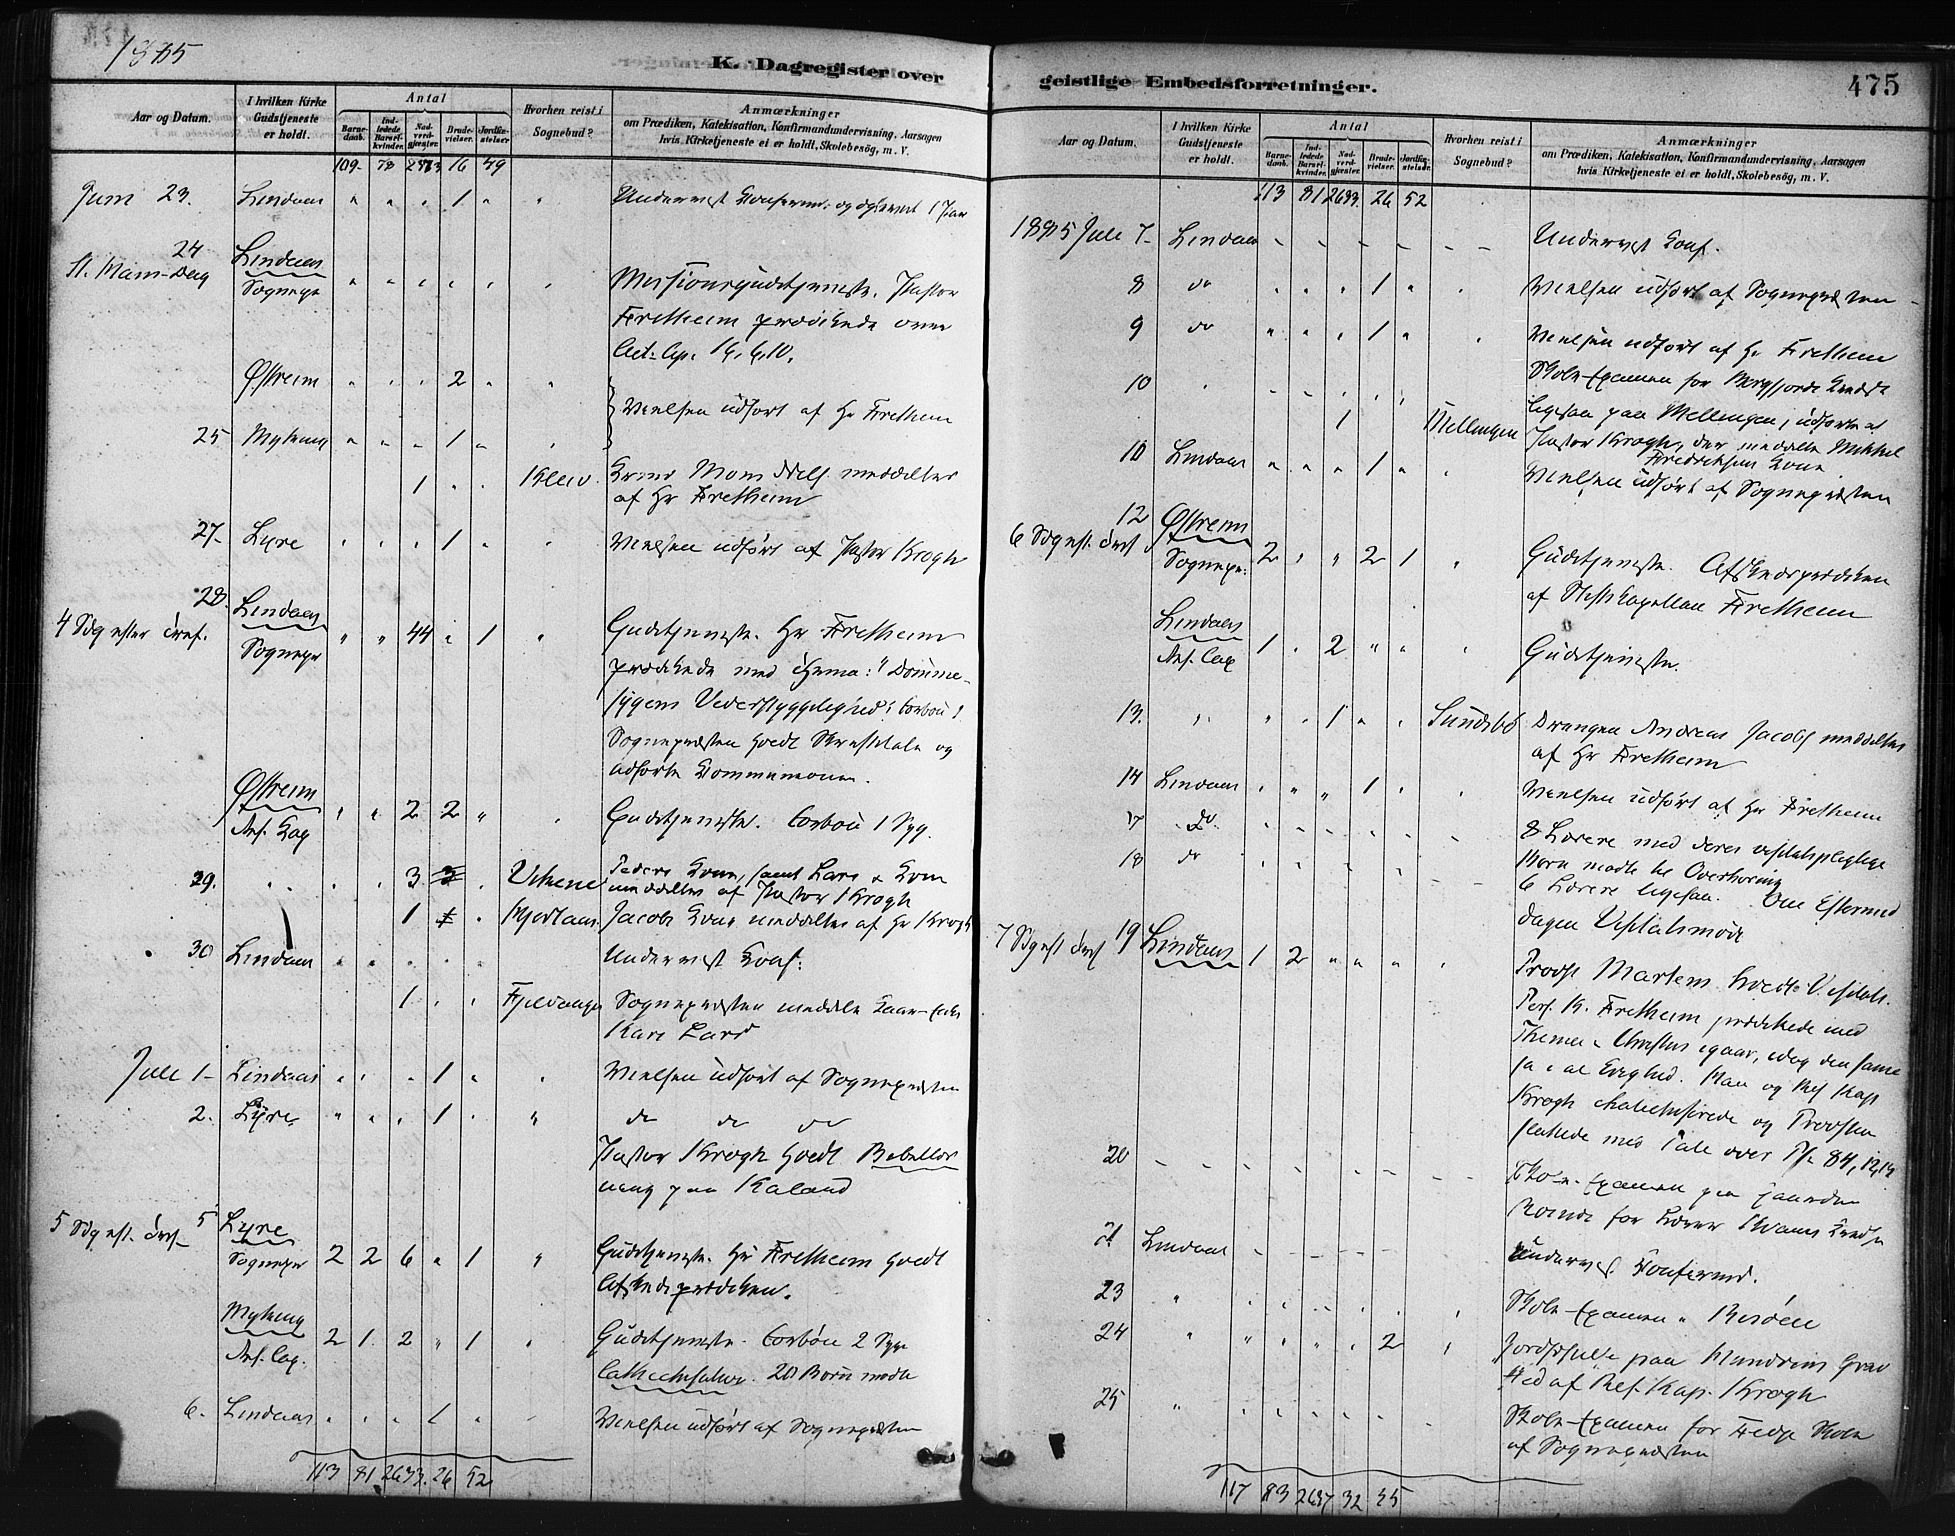 K. Dagregister over
Aar og Datum. I hvilken Kirke Gudstjeneste er holdt. Antal Barnedaab. Indledede Barselkvinder. Nadverdgjæster. Brudevielser. Jordfæstelser Hvorhen reist i Sognebud? Anmærkninger
om Prædiken, Katekisation, Konfirmandundervisning, Aarsagen
hvis Kirketjeneste ei er holdt, Skolebesög, m. V.
109 78 16 49
Juni 23. Lindaas " " " 1 " " Undervist Konfirm. og 1 Par
24 Lindaas
St. Hans-Dag Sognepr " " " " " " Missionsgudstjeneste. Pastor
Fretheim prædikede over
Act. Ap. 16, 6, 10.
Østreim " " " 2 " "
Vielsen udført af Hr Fretheim
25 Myking " " " 1 " "
1 " " Kleiv. Mons meddeltes
af Hr Fretheim
27. Lygre " " " 1 " " Vielsen udført af Pastor Krogh
28. Lindaas
4 Søg efter Tref. Sognepr " " 44 " 1 " Gudstjeneste. Hr Fretheim
prædikede med Thema: "Dømme-
sygens Vederstyggelighed".
Sognepræsten holdt Skriftetale og
udførte Kommunionen.
Østreim
Res. Kap " " 2 2 " " Gudstjeneste. 1 Syg.
29. " " " " 3 " Peders Kone, samt Lars & Kone
meddeltes af Pastor Krogh
1 " Jacobs Kone meddeltes af Hr Krogh
30 Lindaas " " " " " Undervist Konf:
1 " " Fjeldanger Sognepræsten meddelte
Kari Larsd
Juli 1 Lindaas " " " 1 " " Vielsen udført af Sognepræsten
2. Lygre " " " 1 " " do do do
Pastor Krogh holdt Bibellæs
ning paa Kaland
5 Søg eft. Tref 5 Lygre
Sognepr 2 2 6 " 1 " Gudstjeneste. Hr Fretheim holdt
Afskedsprædiken.
Myking
Res. Cap. 2 1 2 " 1 " Gudstjeneste. 2 Syge
20 Børn mødte
6. Lindaas " " " 1 " " Vielsen udført af Sognepræsten
113 81 2633. 26 52
geistlige Embedsforretninger. 475
Aar og Datum. I hvilken Kirke Gudstjeneste er holdt. Antal Barnedaab. Indledede Barselkvinder. Nadverdgjæster. Brudevielser. Jordfæstelser. Hvorhen reist i Sognebud? Anmærkninger
om Prædiken, Katekisation, Konfirmandundervisning, Aarsagen
hvis Kirketjeneste ei er holdt, Skolebesög, m. V.
113 81 2633. 26 52
Juli 7 Lindaas " " " " " " Undervist Konf.
8 do " " " 1 " " Vielsen udført af Sognepræsten
9 do " " " 1 " " Vielsen udført af Hr Fretheim
10 " " " " " " Skole-Examen for Kreds
1 Mellingen ligesaa paa Mellingen, udførtes af
Pastor Krogh, der meddelte Mikkel
Fredriksens Kone
10 Lindaas " " " 1 " " Vielsen udført af Sognepræsten
12 Østreim
6 Søg eft. Tref Sognepr. 2 " " 2 1 " Gudstjeneste. Afskedsprædiken
af Stiftskapellan Fretheim
Lindaas
Res. Cap 1 " 2 " " " Gudstjeneste.
13. " " " 1 " " Sundsbø Drengen Andreas Jacobs meddeltes
af Hr Fretheim
14 Lindaas " " " 1 " " Vielsen udført af Hr Fretheim
do 8 Lærere med deres visitatspligtige
18 do Børn mødte til Overhøring
6 Lærere ligesaa. Om Eftermid
dagen Visitatsmøde
7 Søg eft Tref 19 Lindaas 1 2 " " " " Provst Martens holdt Visitats.
Pers. K. Fretheim prædikede med
Thema: Christus igaar, idag den samme
ja i al Evighed. Han og Res Kap
Krogh katechiserede og Provsten
sluttede med Tale over Ps. 84,
20 Skole-Examen paa
for Lærer
21 Lindaas Undervist Konfirmd.
23 " Skole-Examen
24 " " " " " 2 " Jordfæstelse paa Grav
sted af Res. Kap. Krogh
25 " Skole-Examen for Skole
af Sognepræsten
117 83 2637 32